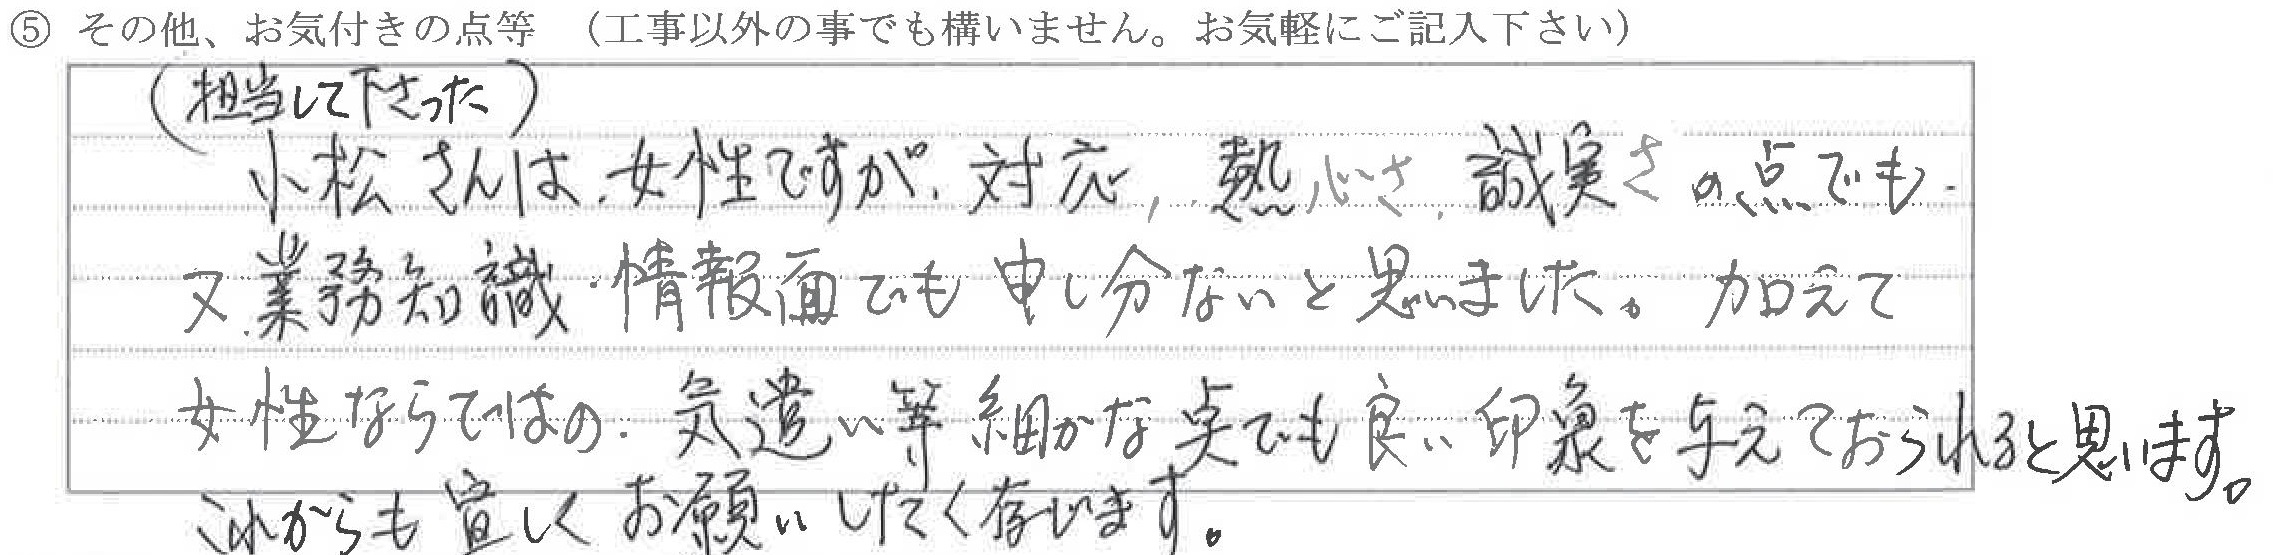 ⑤ その他、お気付きの点等 （工事以外の事でも構いません。お気軽にご記入下さい）
（担当して下さった）
小松さんは、女性ですが、対応、熱心さ、誠実さの点でも、
又、業務知識・情報面でも申し分ないと思いました。加えて
女性ならではの、気遣い等細かな点でも良い印象を与えておられると思います。
これからも宜しくお願いしたく存じます。